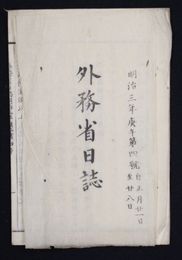 明治三年庚午第四號 自正月廿一日 至廿八日
外務省日誌